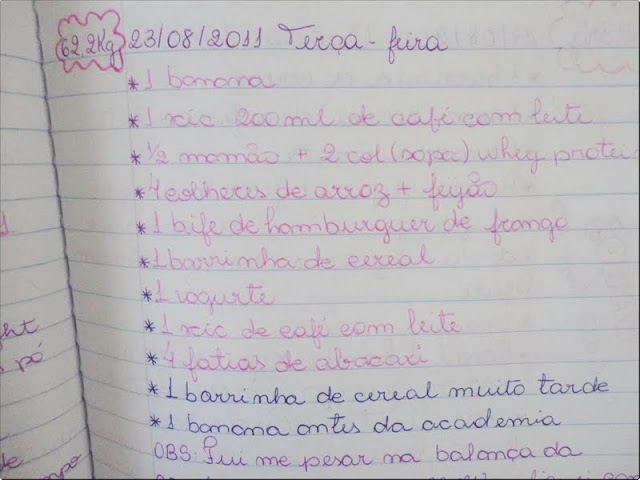 62,2Kg 23/08/2011 Terça-feira
*1 banana
*1 xíc 200ml de café com leite
*½ mamão + 2 col (sopa) wheg protei
*4 colheres de arroz + feijão
*1 bife de hamburguer de frango
*1 barrinha de cereal
*1 iogurte
*1 xíc de café com leite
*4 fatias de abacaxi
*1 barrinha de cereal muito tarde
*1 banana antes da academia
OBS: Fui me pesar na balança da
1
ht
pó
de